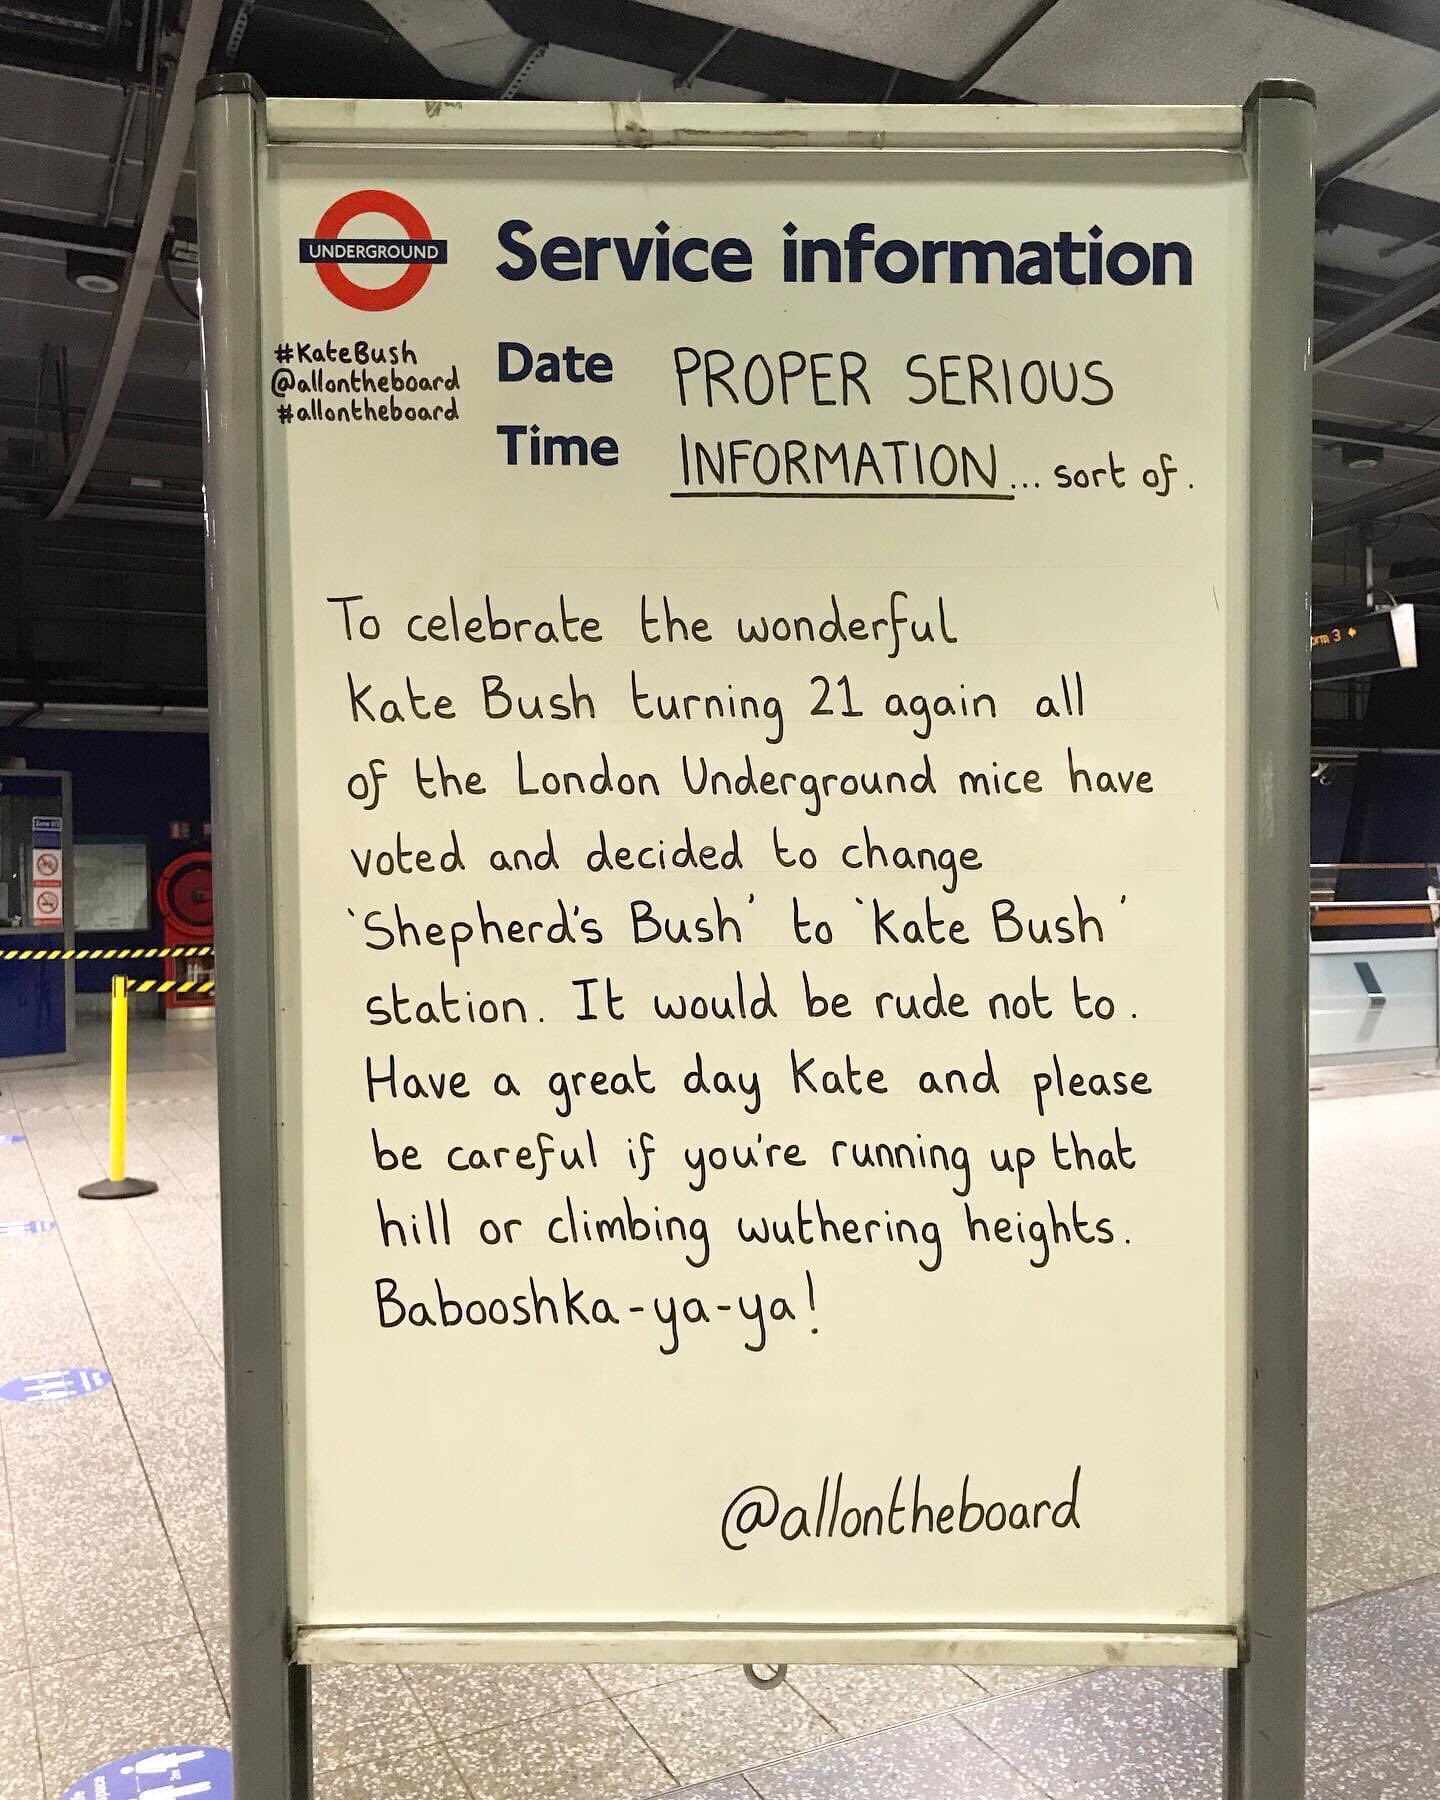 UNDERGROUND
Service information
#KateBush
@allontheboard
#allontheboard
Date PROPER SERIOUS
Time INFORMATION... sort of.
To celebrate the wonderful
Kate Bush turning 21 again all
of the London Underground mice have
voted and decided to change
'Shepherd's Bush' to 'Kate Bush'
station. It would be rude not to.
Have a great day Kate and please
be careful if you're running up that
hill or climbing wuthering heights.
Babooshka-ya-ya!
@allontheboard
rm 3